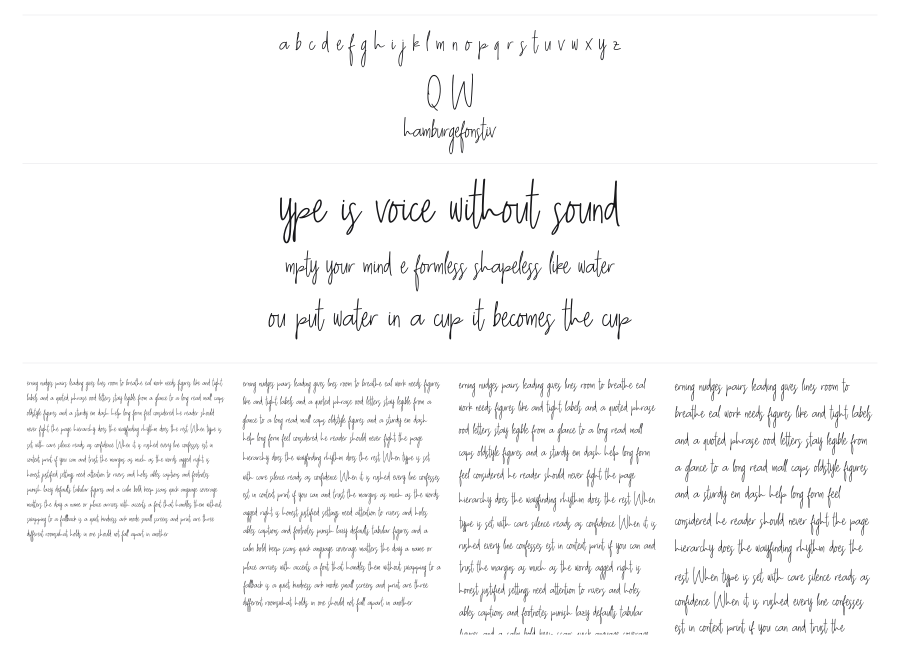 a b c d e f g h i j k l m n o p q r s t u v w x y z
Q W
hamburgefonstiv
ype is voice without sound
mpty your mind e formless shapeless like water
ou put water in a cup it becomes the cup
erning nudges pairs leading gives lines room to breathe eal work needs figures like and tight
labels and a quoted phrase ood letters stay legible from a glance to a long read mall caps
oldstyle figures and a sturdy em dash help long form feel considered he reader should
never fight the page hierarchy does the wayfinding rhythm does the rest When type is
set with care silence reads as confidence When it is rushed every line confesses est in
context print if you can and trust the margins as much as the words agged right is
honest justified settings need attention to rivers and holes ables captions and footnotes
punish lazy defaults tabular figures and a calm bold keep scans quick anguage coverage
matters the day a name or place arrives with accents a font that handles them without
swapping to a fallback is a quiet kindness ark mode small screens and print are three
different rooms what holds in one should not fall apart in another
erning nudges pairs leading gives lines room to breathe eal work needs figures
like and tight labels and a quoted phrase ood letters stay legible from a
glance to a long read mall caps oldstyle figures and a sturdy em dash
help long form feel considered he reader should never fight the page
hierarchy does the wayfinding rhythm does the rest When type is set
with care silence reads as confidence When it is rushed every line confesses
est in context print if you can and trust the margins as much as the words
agged right is honest justified settings need attention to rivers and holes
ables captions and footnotes punish lazy defaults tabular figures and a
calm bold keep scans quick anguage coverage matters the day a name or
place arrives with accents a font that handles them without swapping to a
fallback is a quiet kindness ark mode small screens and print are three
different rooms what holds in one should not fall apart in another
erning nudges pairs leading gives lines room to breathe eal
work needs figures like and tight labels and a quoted phrase
ood letters stay legible from a glance to a long read mall
caps oldstyle figures and a sturdy em dash help long form
feel considered he reader should never fight the page
hierarchy does the wayfinding rhythm does the rest When
type is set with care silence reads as confidence When it is
rushed every line confesses est in context print if you can and
trust the margins as much as the words agged right is
honest justified settings need attention to rivers and holes
ables captions and footnotes punish lazy defaults tabular
figures and a calm bold keep scans quick anguage coverage
erning nudges pairs leading gives lines room to
breathe eal work needs figures like and tight labels
and a quoted phrase ood letters stay legible from
a glance to a long read mall caps oldstyle figures
and a sturdy em dash help long form feel
considered he reader should never fight the page
hierarchy does the wayfinding rhythm does the
rest When type is set with care silence reads as
confidence When it is rushed every line confesses
est in context print if you can and trust the